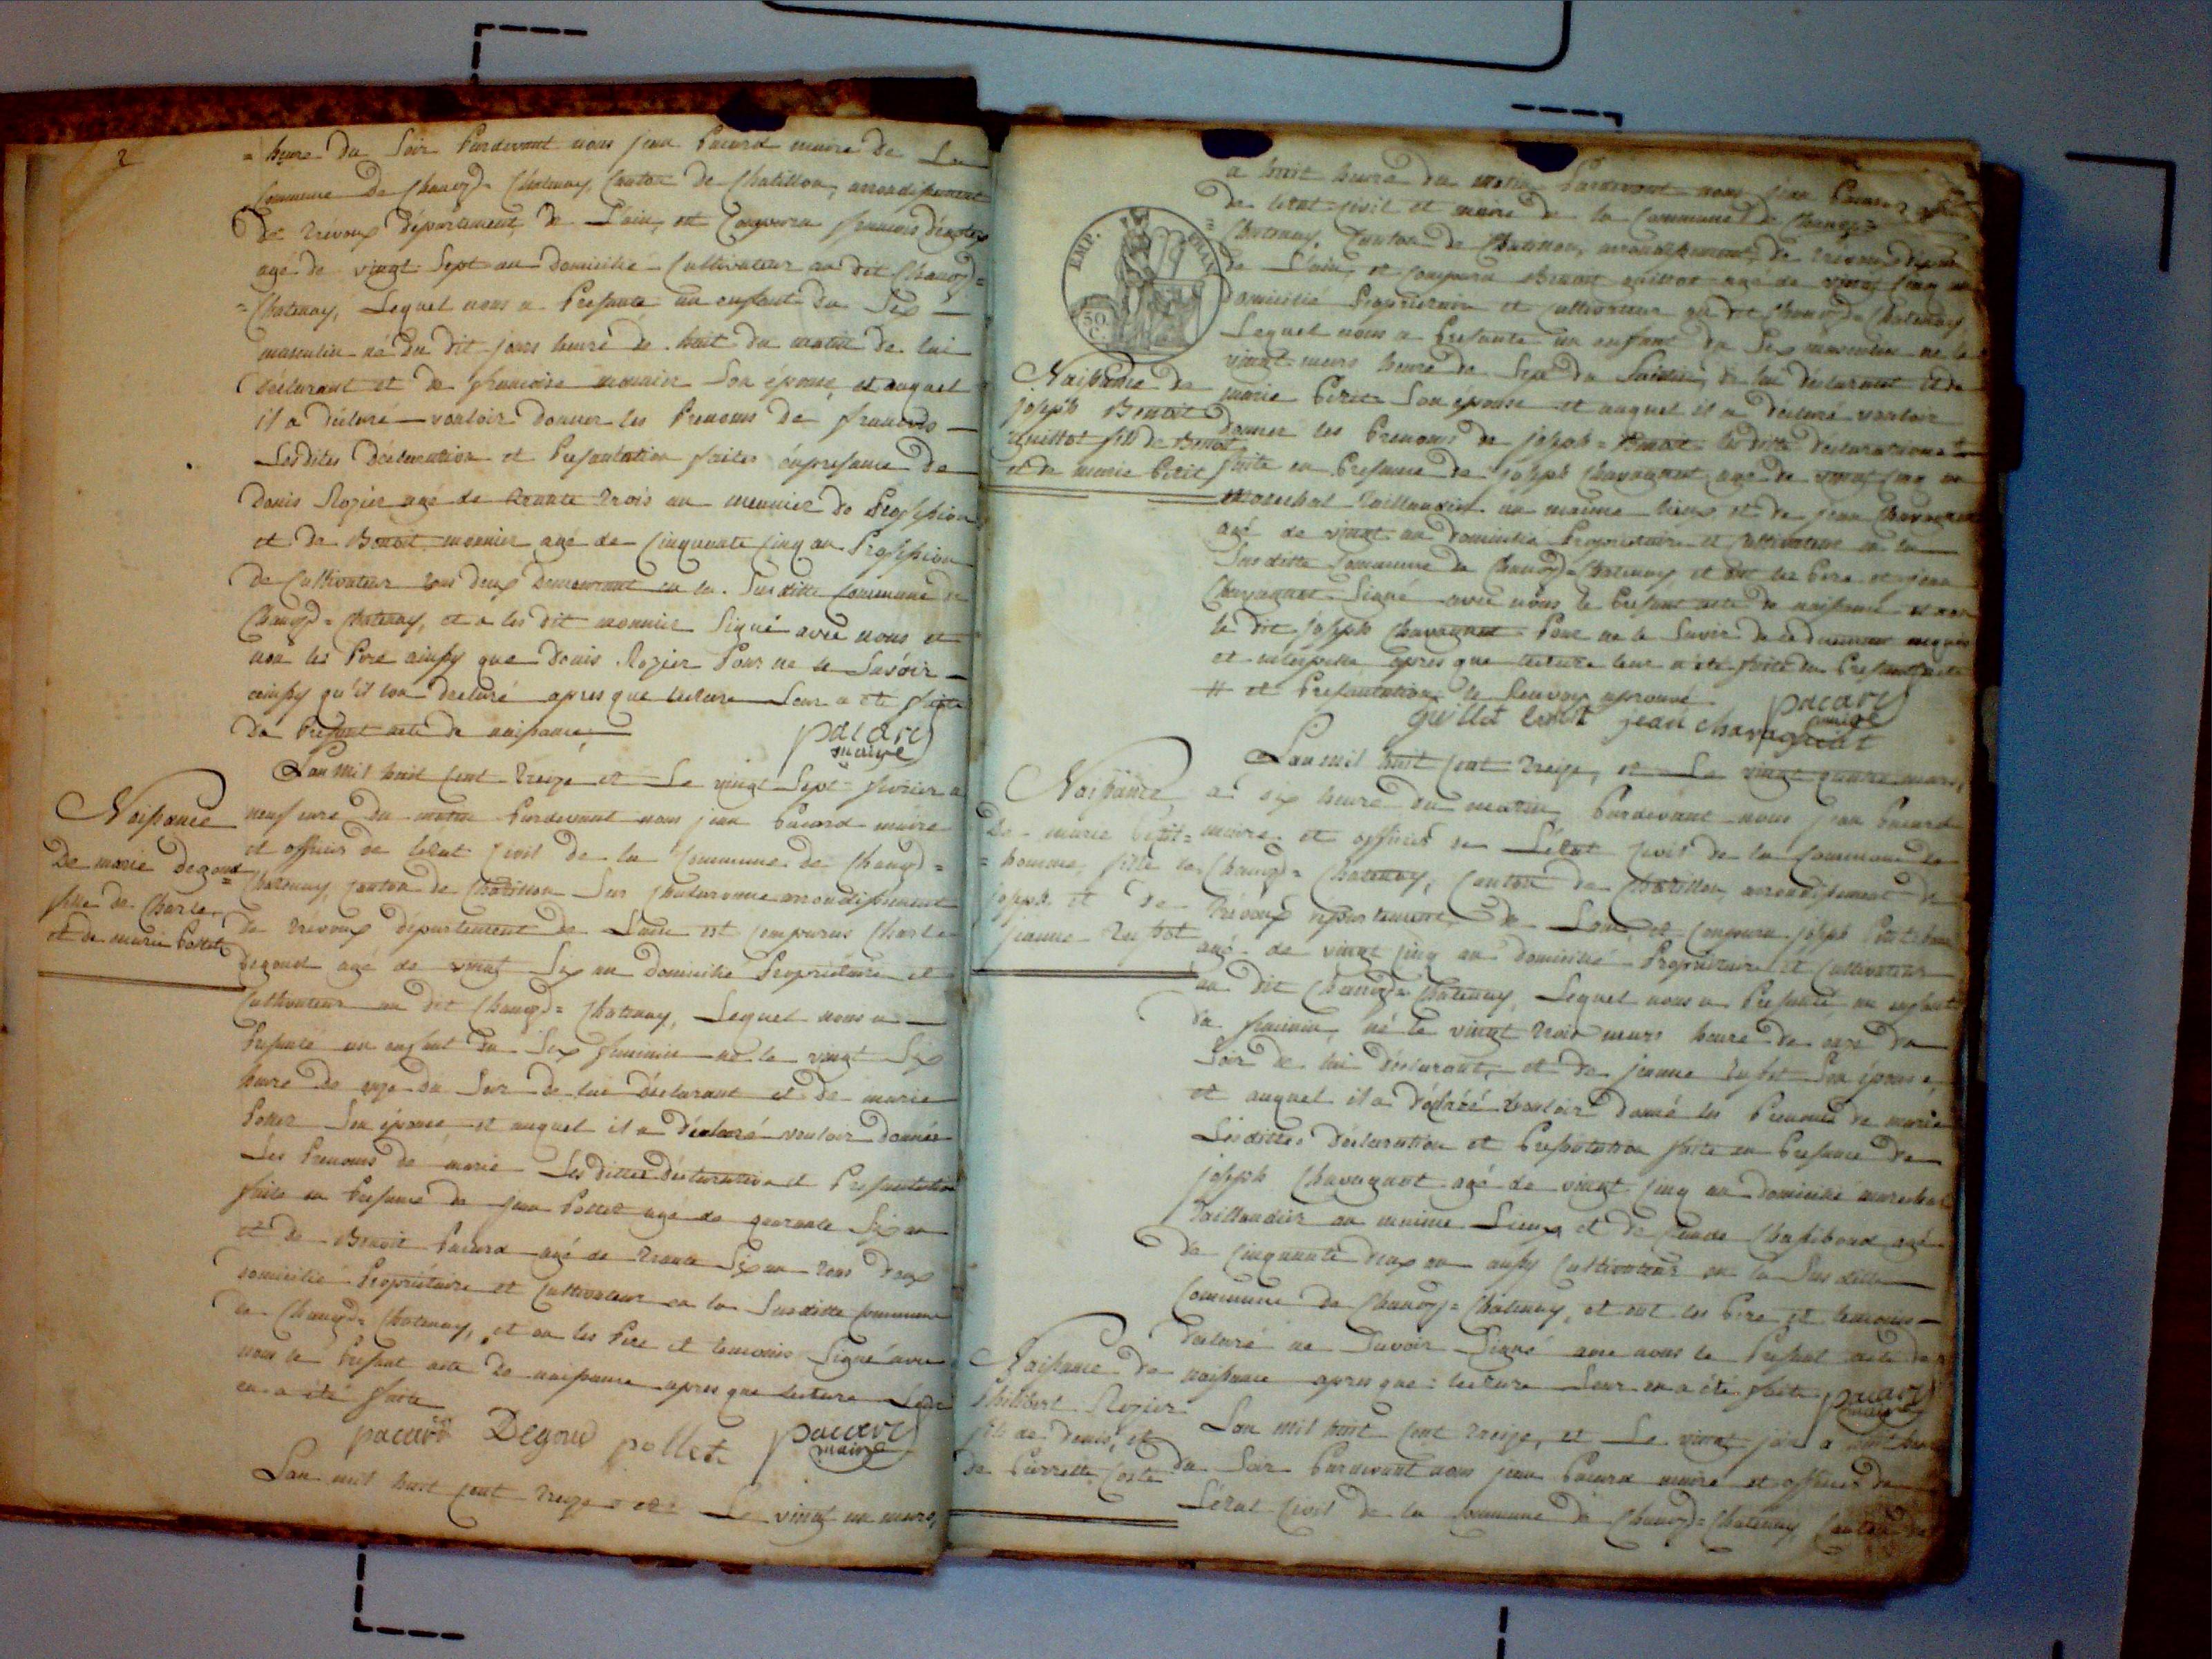 2
= heure du soir Pardevant nous jean Pacard maire de La
Commune de Chanoz= Chatenay, Canton de Chatillon, arrondissement
de trévoux département de L'ain, est Comparu francois
agé de vingt Sept an domicilié Cultivateur au dit Chanoz=
=Chatenay, Lequel nous a Presanté un enfant du Sex
masculin né du dit jour heure de huit du matin de lui
déclarant et de francoise monnier Son épouse, et auquel
il a déclaré vouloir donner les Prenoms de francois
Lesdites Déclaration et Presantation faites enpresance de
denis Rozier agé de trante trois an meunier de Profession
et de Benoit monnier agé de Cinquante Cinq an Profession
de Cultivateur tous deux demeurant en la Susditte Commune de
Chanoz= Chatenay, et a les dit monnier Signé avec nous et
non les Pere ainssy que Denis Rozier Pour ne le Savoir
ainssy qu'il lon declaré apres que lecture Leur a été faite
du Present acte de naissance
pacard
maire
Naissance
De marie degoud
fille de Charle,
et de marie Pollet
Lan Mil huit Cent treize et Le vingt Sept février a
neuf eure du matin Pardevant nous jean Pacard maire
et officier de letat Civil de la Commune de Chanoz=
Chatenay, Canton de Chatillon Sur Chalaronne arrondissement
de trévoux département de Lain est Comparus Charle
Degoud agé de vingt Six an domicilié Propriétaire et
Cultivateur au dit Chanoz= Chatenay, Lequel nous a
Presanté un enfant du Sex feminin né le vingt Six
heure de onze du Soir de lui déclarant et de marie
Pollet Son épouse, et auquel il a déclaré vouloir donner
Les Prenoms de marie Lesdittes déclaration et Presantation
faite en Presance de jean Pollet agé de quarante Six an
et de Benoit Pacard agé de trante Six an tous deux
domicilié Propriétaire et Cultivateur en la Susditte Commune
de Chanoz= Chatenay, et on les Pere et temoins Signé avec
nous le Present acte de naissance apres que lecture Leur
en a été faite
pacard Degoud pollet pacard
maire
Lan mil huit Cent treize et Le vingt un mars,
EMP. FRAN.
50
C.
a huit heure du matin Pardevant nous jean Pacard
de letat civil et maire de la Commune de Chanoz=
=Chatenay, Canton de Chatillon, arrondissement de trévoux
de L'ain, et Comparu Benoit guillot agé de vingt Cinq an
domicilié Propriétaire et Cultivateur au dit Chanoz= Chatenay
Lequel nous a Presanté un enfant du Sex masculin né le
vingt mars heure de Sept du de lui déclarant et de
marie Petit Son épouse et auquel il a déclaré vouloir
donner les Prenoms de joseph= Benoit Lesditte declarations #
faite en Presance de joseph Chavagnat agé de vingt Cinq an
Marechal taillandier au maime Lieux, et de jean Chavagnat
agé de vingt an domicilié Propriétaire et Cultivateur en la
Susditte Commune de Chanoz= Chatenay et ont les Pere et jean
Chavagnat Signé avec nous le Present acte de naissance et non
le dit joseph Chavagnat Pour ne le Savoir de ce duement requis
et interpellé apres que lecture leur a été faite du Present acte
# et Presantation le Renvoy aprouvé
Naissance de
joseph Benoit
guillot fils de Benoit
et de marie Petit
guillot benoit jean chavagnat pacard
maire
Naissance
De marie Petit=
=homme, fille de
joseph et de
jeanne
Lan mil huit Cent treize, et Le vingt quatre mars,
a six heure du matin Pardevant nous jean Pacard
maire et officier de L'état Civil de la Commune de
Chanoz= Chatenay, Canton de Chatillon, arrondissement de
trévoux département de Lain, et Comparu joseph Petithomme
agé de vingt Cinq an domicilié Propriétaire et Cultivateur
au dit Chanoz= Chatenay, Lequel nous a Presanté un enfant
du feminin, né le vingt trois mars heure de onze du
Soir de lui déclarant, et de jeanne Son épouse,
et auquel il a déclaré vouloir donné les Prenoms de marie
Lesdittes Déclaration et Presantation faite en Presance de
joseph Chavagnat agé de vingt Cinq an domicilié marechal
taillandier au maime Lieux et de Claude agé
de Cinquante deux an aussy Cultivateur en la Susditte
Commune de Chanoz= Chatenay, et ont les Pere et temoins
declaré ne Savoir Signé avec nous le Present acte de
naissance apres que lecture Leur en a été faite
pacard
maire
Naissance de
Philibert Rozier
fils de Denis, et
de Pierrette Coste
Lan mil huit Cent treize, et Le vingt juin a huit heure
du Soir Pardevant nous jean Pacard maire et officier de
L'état Civil de la Commune de Chanoz= Chatenay Canton de